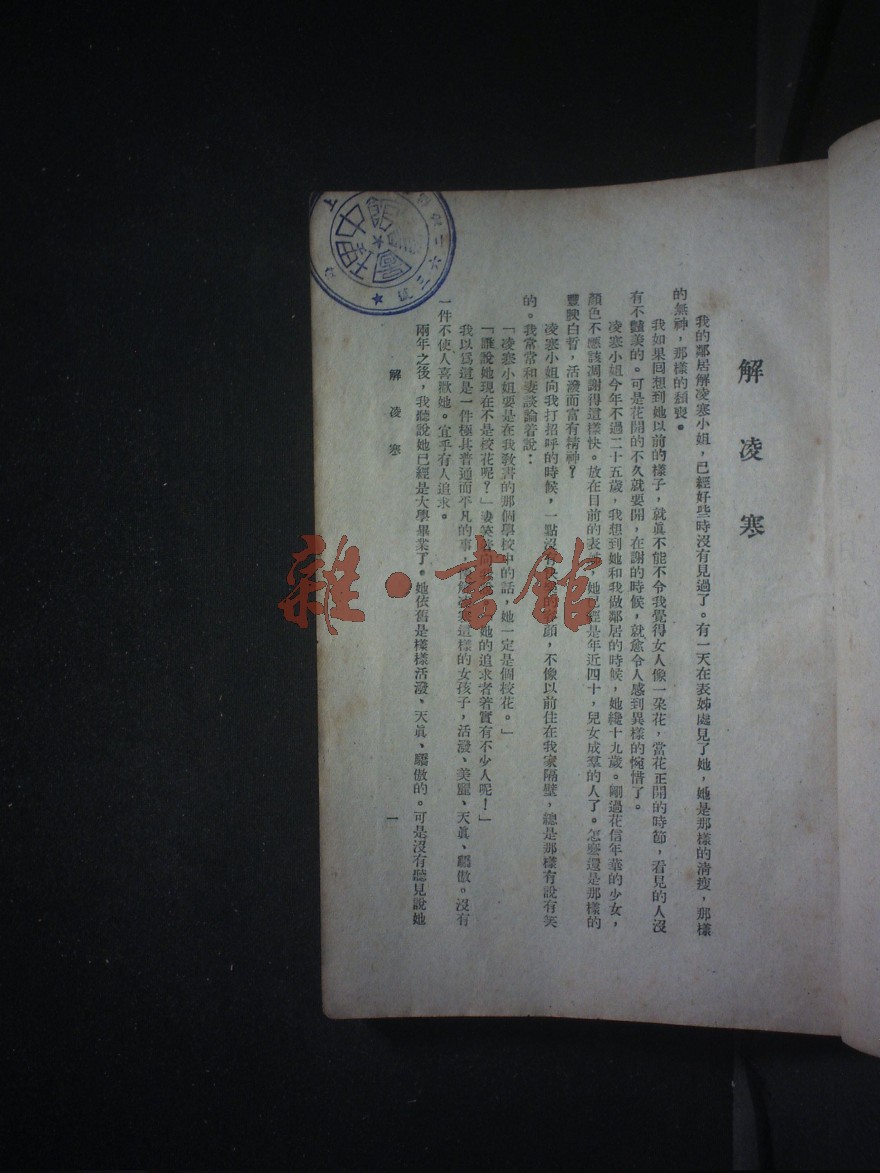 解凌寒
我的鄰居解凌寒小姐，已經好些時沒有見過了。有一天在表姊處見了她，她是那樣的清瘦，那樣
的無神，那樣的頹喪。
我如果回想到她以前的樣子，就眞不能不令我覺得女人像一朶花，當花正開的時節，看見的人沒
有不豔美的。可是花開的不久就要謝，在謝的時候，就愈令人感到異樣的惋惜了。
凌寒小姐今年不過二十五歲，我想到她和我做鄰居的時候，她纔十九歲。剛過花信年華的少女，
顏色不應該凋謝得這樣快。放在目前的表，她已經是年近四十，兒女成羣的人了。怎麼還是那樣的
豐腴白晳，活潑而富有精神？
凌寒小姐向我打招呼的時候，一點沒有顏，不像以前住在我家隔壁，總是那樣有說有笑
的。我常常和妻談論着說：
「凌寒小姐要是在我敎書的那個學校中的話，她一定是個校花。」
「誰說她現在不是校花呢？」妻笑她的追求者著實有不少人呢！」
我以爲這是一件極其普通而平凡的事，這樣的女孩子，活潑、美麗、天眞、驕傲。沒有
一件不使人喜歡她。宜乎有人追求。
兩年之後，我聽說她已經是大學畢業了。她依舊是樣樣活潑、天眞、驕傲的。可是沒有聽見說她
解凌寒
一
雜·書館